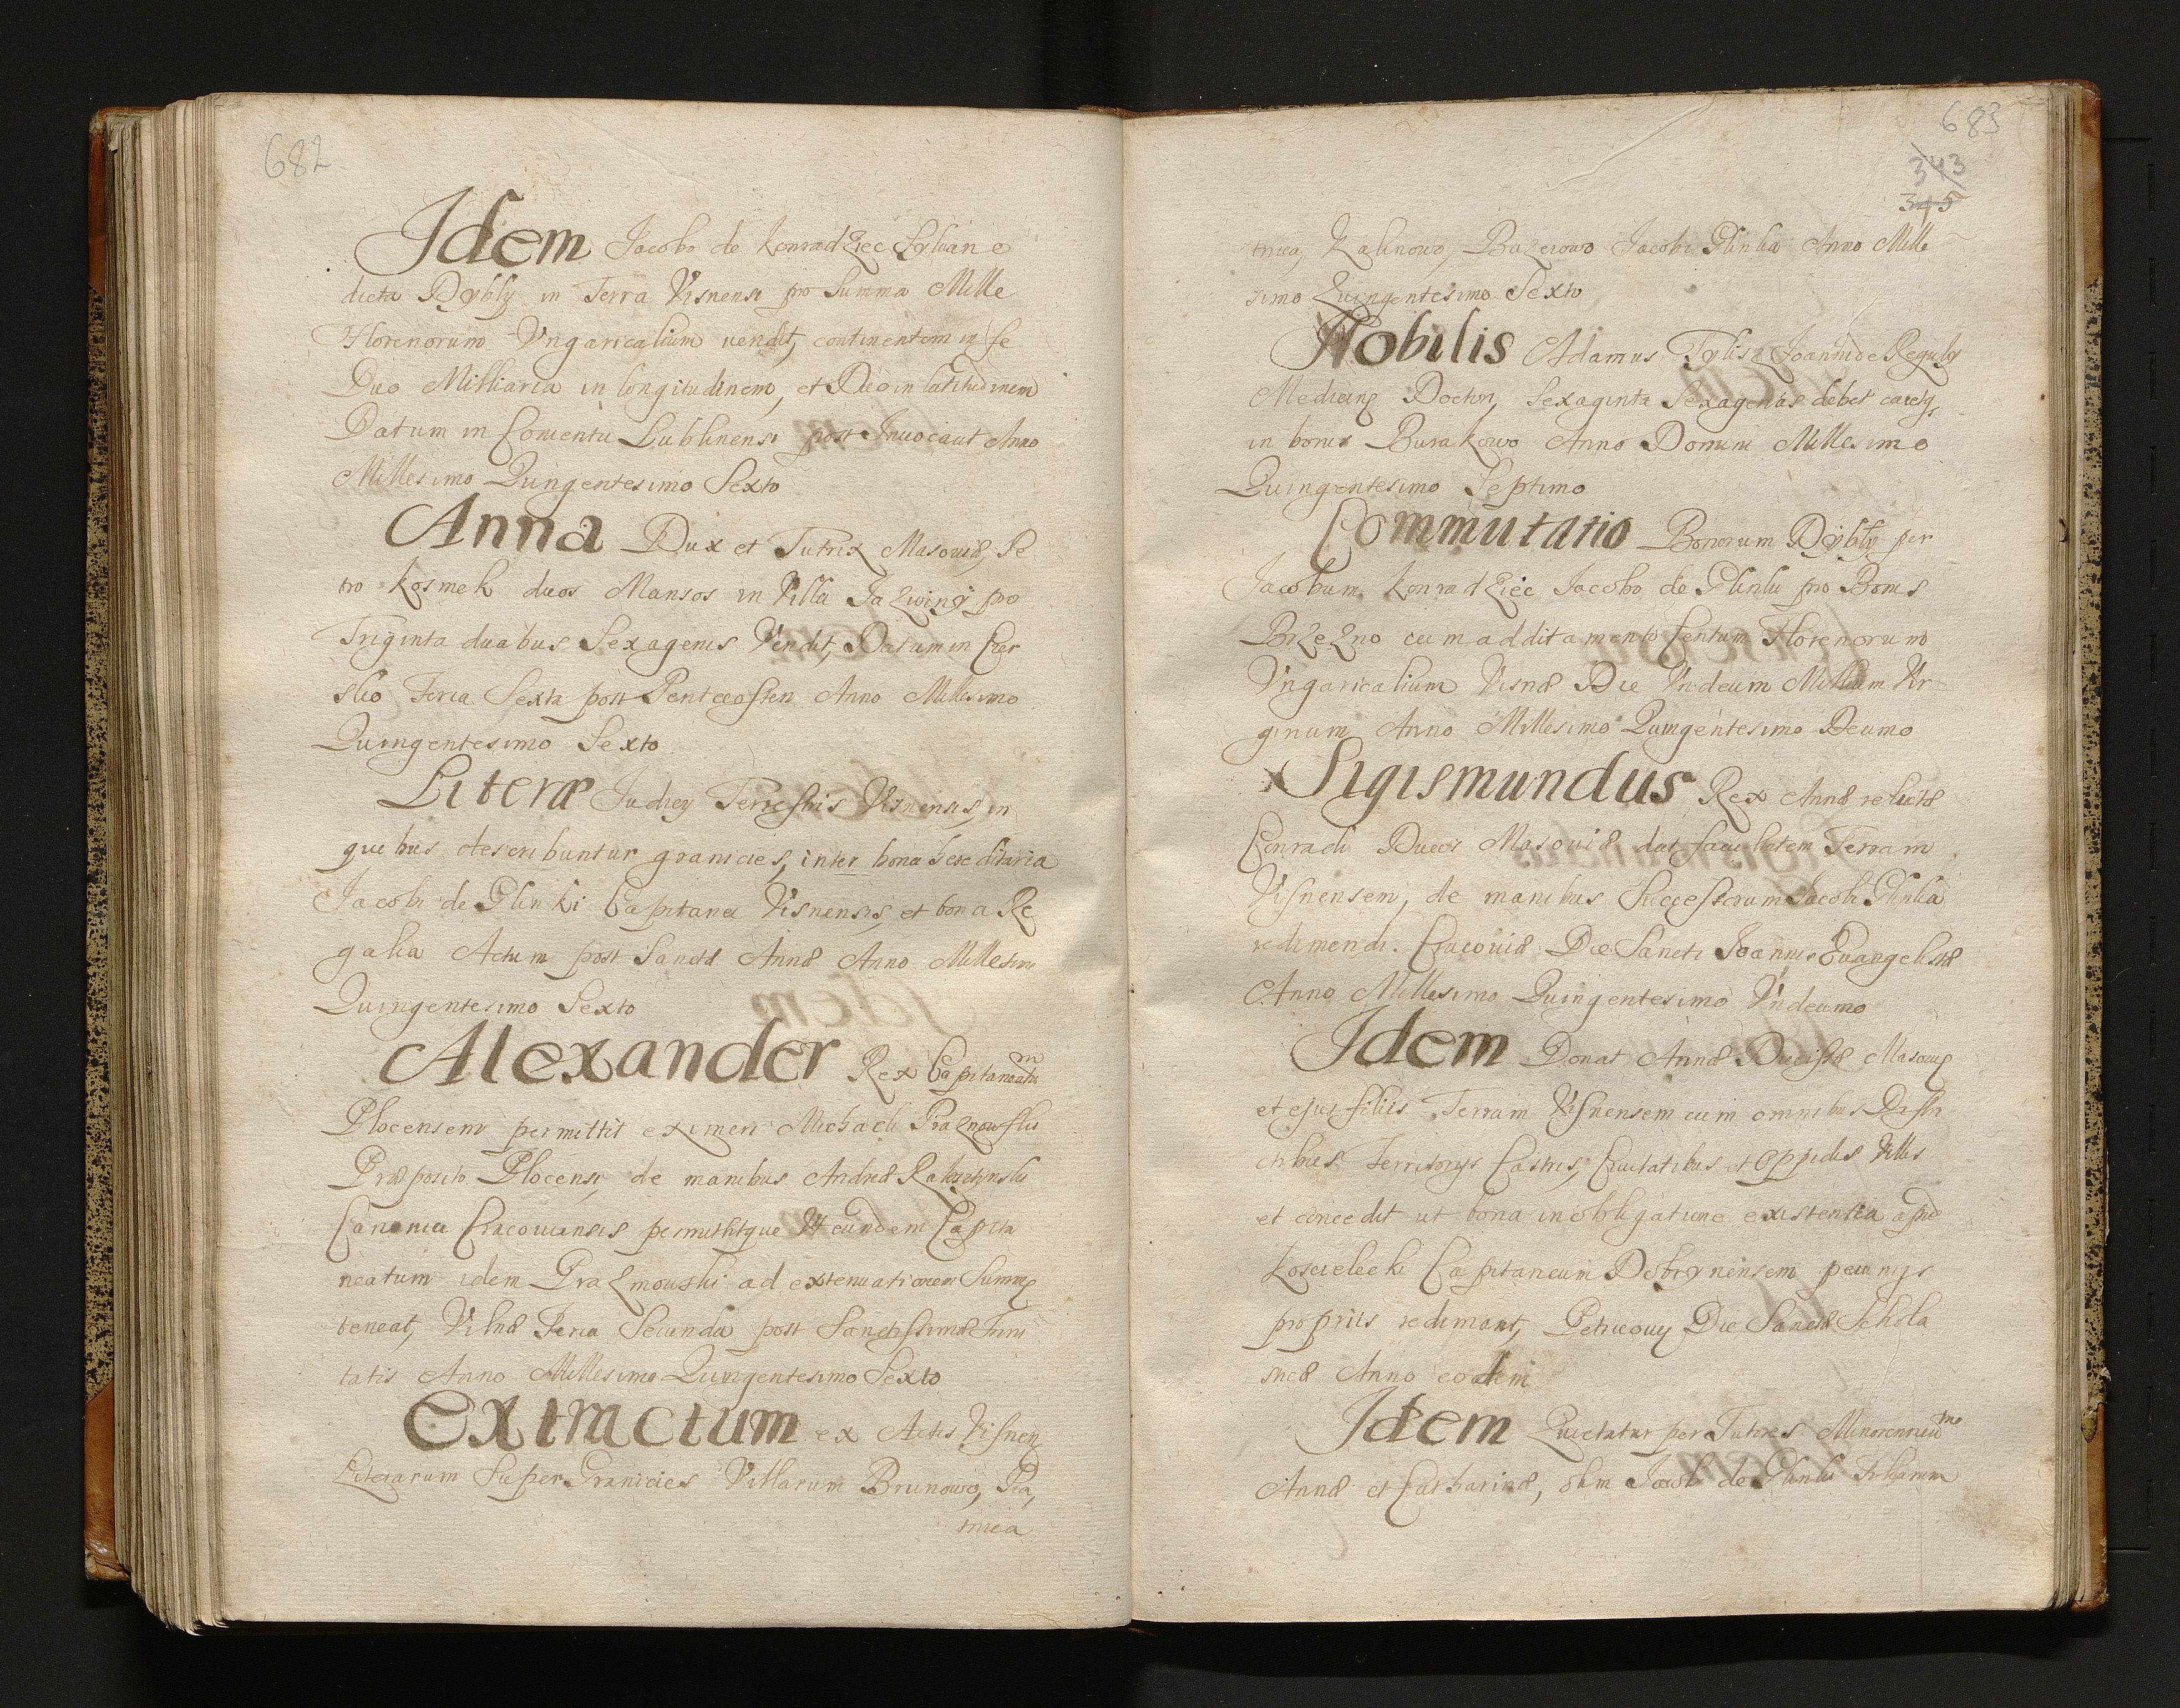 682
Idem Jacobo de Konradziec Sylvane
dicta Dybly in Terra Visnensi pro Summa Mille
Florenorum Ungaricalium vendit, continentem in se
Duo Milliaria in longitudinem, et Duo in latitudinem
Datum in Conventu Lublinensi post Invocavit Anno
Millesimo Quingentesimo Sexto
Anna Dux et Tutrix Masoviæ, Pe
tro Kosmek duos Mansos in Villa Jazwiny pro
Triginta duabus Sexagenis Vendit, Datum in Czer
sko Feria Sexta post Pentecosten Anno Millesimo
Quingentesimo Sexto
Literæ Judicy Terrestris Visnensis, in
quibus describuntur granicies, inter bona hereditaria
Jacobi de Glinki Capitanei Visnensis, et bona Re
galia Actum post Sanctæ Annæ Anno Millesimo
Quingentesimo Sexto
Alexander Rex Capitaneatum
Plocensem permittit eximeri Michaeli Prazmowski
Præposito Plocensi, de manibus Andreæ
Canonici Cracoviensis permittitque Ut eundem Capita
neatum idem Prazmowski ad extenuationem Summę
teneat, Vilnæ Feria Secunda post Sanctissimæ Trini
tatis Anno Millesimo Quingentesimo Sexto
Extractum ex Actis Visnen
Literarum Super Granicies Villarum Brunowo, Pia,
tnica
683
343
345
tnica, Kalinowo, Buzerowo Jacobi Glinka Anno Mille
simo Quingentesimo Sexto
Nobilis Adamus Joanni de Reguly
Medicinę Doctori, Sexaginta Sexagenas debet
in bonis Burakowo Anno Domini Millesimo
Quingentesimo Septimo
Commutatio Bonorum Dybly per
Jacobum Konradziec Jacobo de Glinki pro Bonis
Brzezno cum additamento Centum Florenorum
Ungaricalium Visnæ Die Undecim Millium Vir
ginum Anno Millesimo Quingentesimo Decimo
x Sigismundus Rex Annæ relictæ
Conradi Ducis Masoviæ dat facultatem Terram
Visnensem, de manibus Successorum Jacobi Glinka
redimendi. Cracoviæ Die Sancti Joannis Evangelistæ
Anno Millesimo Quingentesimo Undecimo
Idem Donat Annæ Ducissæ Masovię
et ejus filiis Terram Visnensem cum omnibus Distri
ctibus Territorys Castris, Civitatibus et Oppidis Villis
et concedit ut bona in obligatione existentia apud
Koscielecki Capitaneum Dobrynensem pecunijs
propriis redimant, Petricovię Die Sanctæ Schola
sticæ Anno eodem
Idem Quietatur per Tutores Minorennium
Annæ et Catharinæ, olim Jacobi de Glinki Filiarum